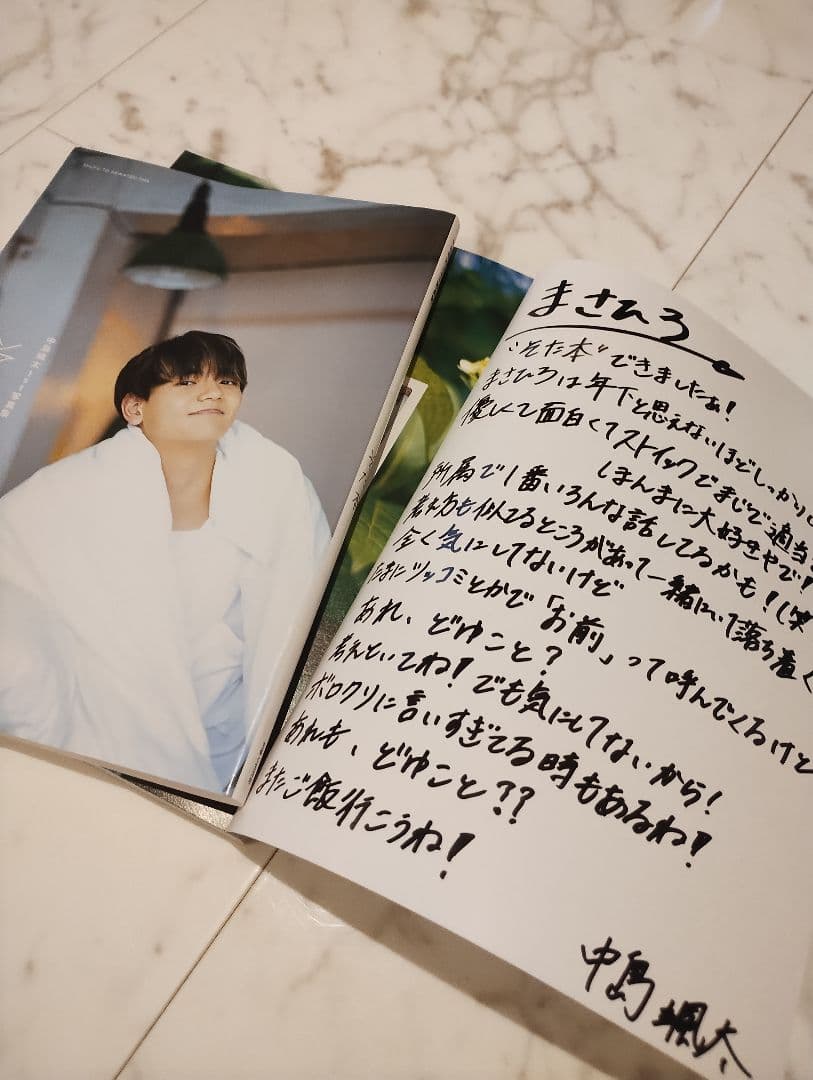 まさひろ
"そた本"できましたぁ!
まさひろは年下と思えないほどしっかり
優しくて面白くてストイックでまじで適当
しほんまに大好きやで!
所属で1番いろんな話してるかも!(笑
考え方も似てるところがあって一緒にいて落ち着く
全く気にしてないけど
たまにツッコミとかで「お前」って呼んでくるけど
あれ、どゆこと?
考えといてね!でも気にしてないから!
ボロクソに言いすぎてる時もあるね!
あれも、どゆこと??
またご飯行こうね!
中島颯太